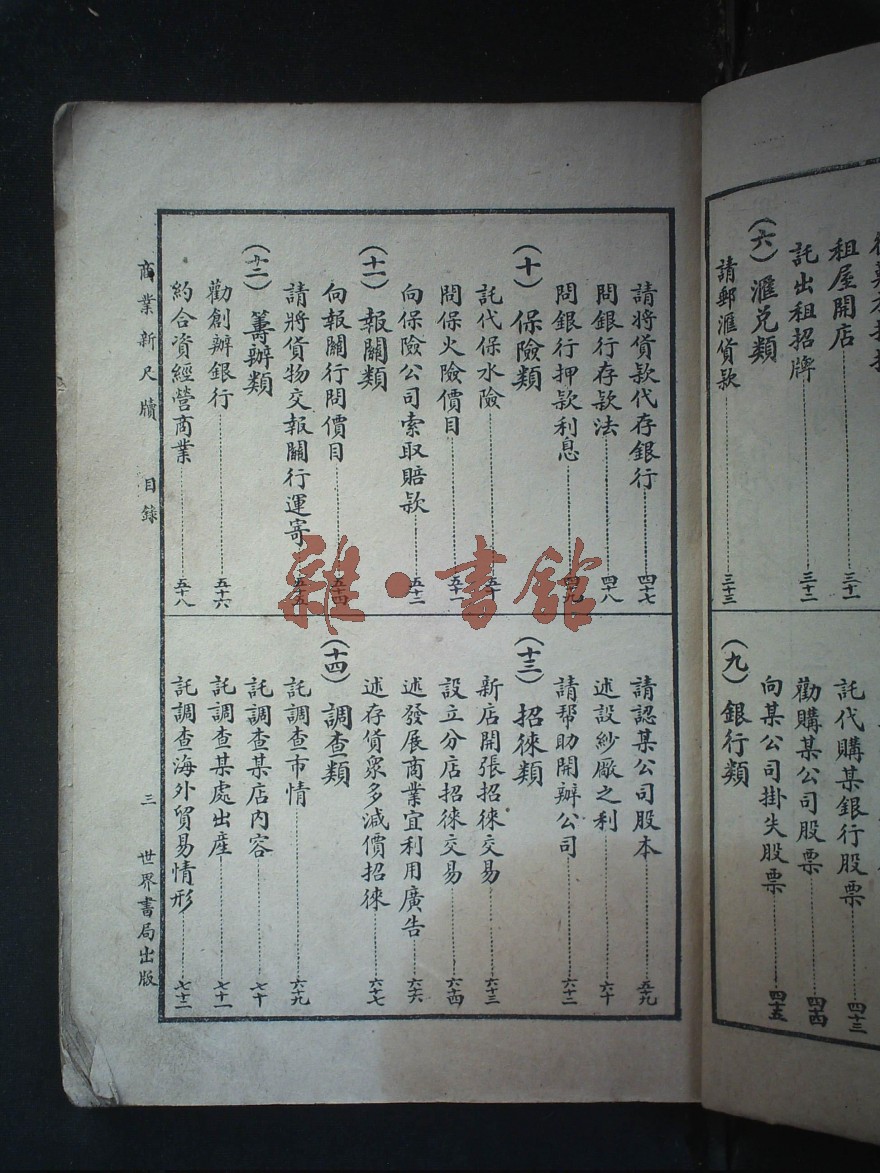 請將貨款代存銀行 四十七
問銀行存款法 四十八
問銀行押款利息 四十九
(十) 保險類
託代保水險 五十
問保火險價目 五十一
向保險公司索取賠款 五十二
(十一) 報關類
向報關行問價目 五十四
請將貨物交報關行運寄 五十五
(十二) 籌辦類
勸創辦銀行 五十六
約合資經營商業 五十八
請認某公司股本 五十九
述設紗廠之利 六十
請帮助開辦公司 六十二
(十三) 招徠類
新店開張招徠交易 六十三
設立分店招徠交易 六十四
述發展商業宜利用廣告 六十六
述存貨眾多減價招徠 六十七
(十四) 調查類
託調查市情 六十九
託調查某店內容 七十
託調查某處出產 七十一
託調查海外貿易情形 七十二
商業新尺牘 目錄 三 世界書局出版
租屋開店 三十一
託出租招牌 三十二
(六) 滙兌類
請郵滙貨款 三十三
託代購某銀行股票 四十三
勸購某公司股票 四十四
向某公司掛失股票 四十五
(九) 銀行類
雜·書館